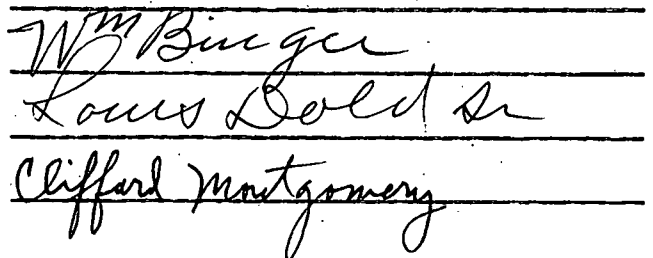 Wm Binger
Louis Bold Sr
Clifford Montgomery